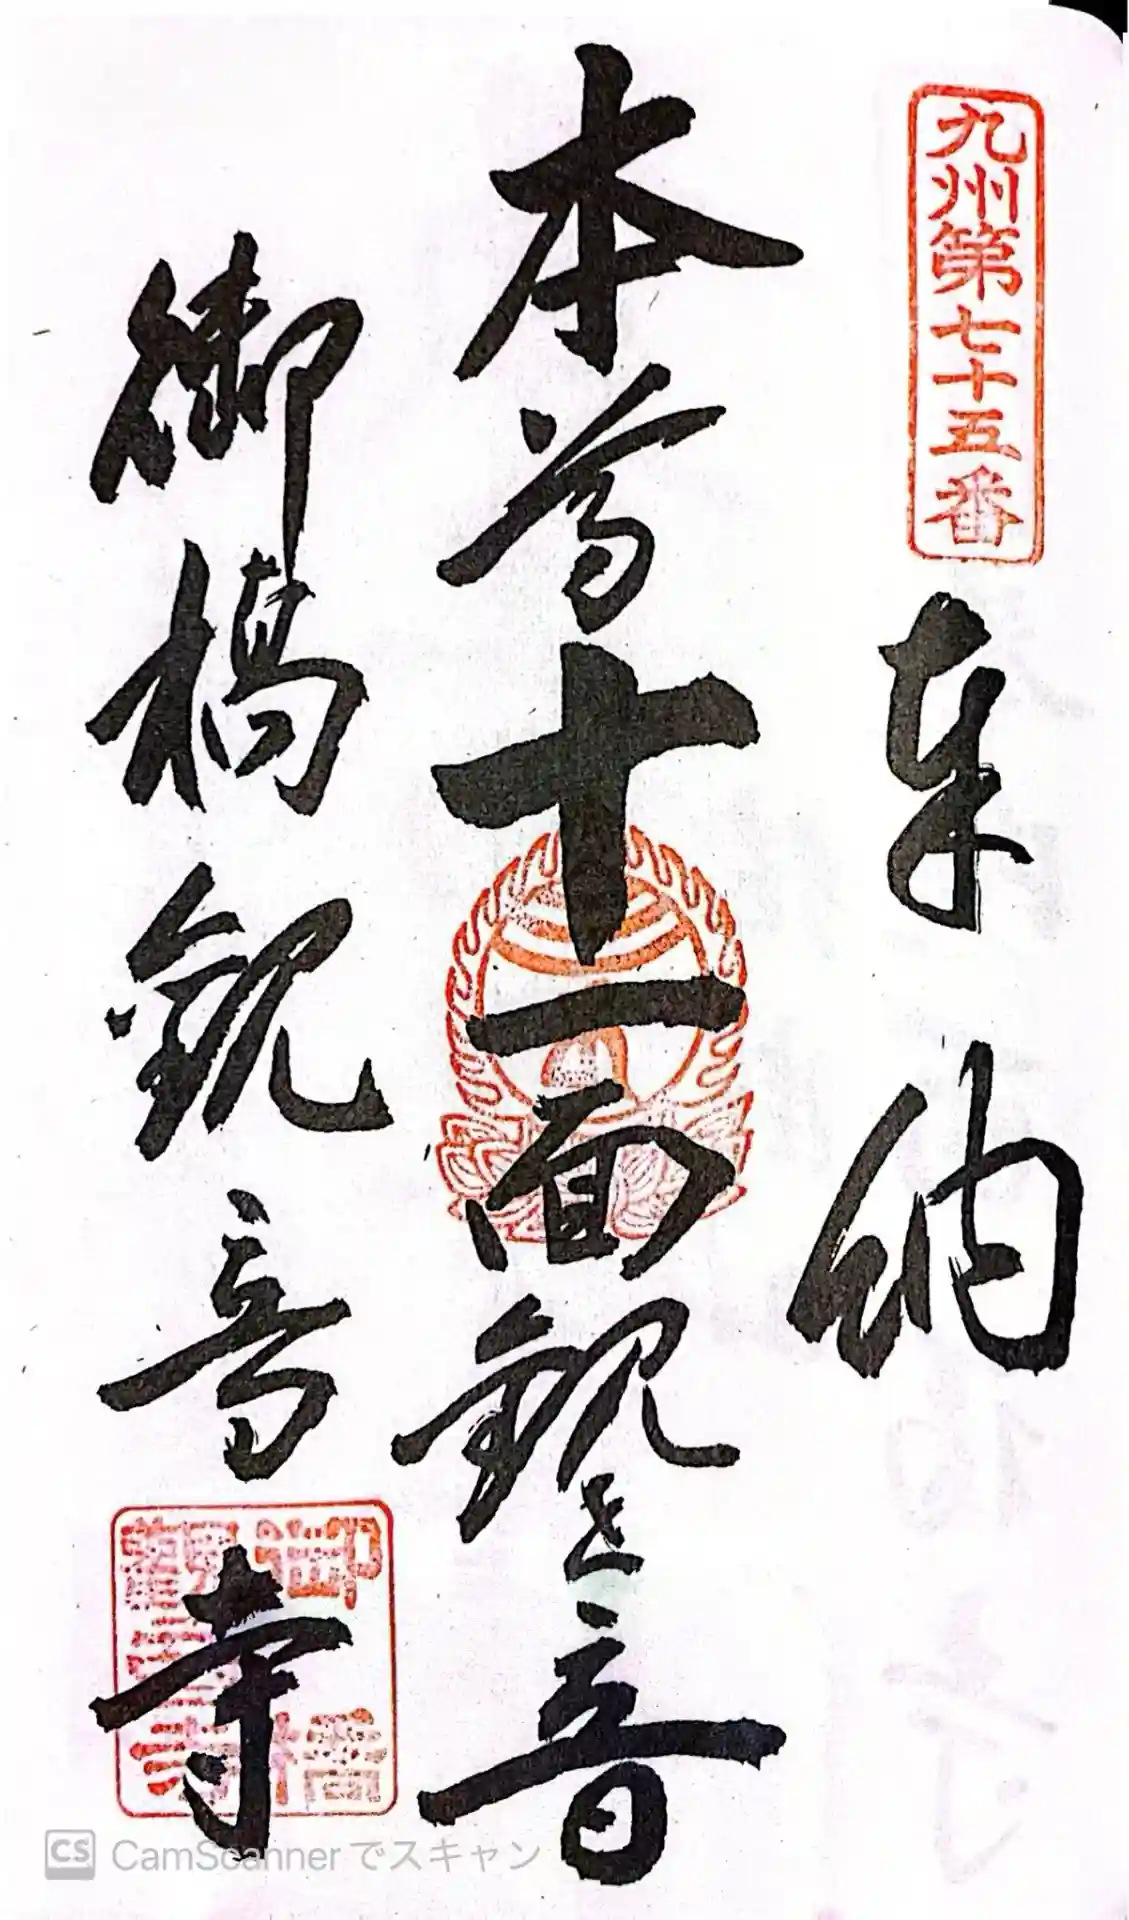 九州第七十五番
奉納
本尊十一面観世音
御橋観音寺
御橋観音寺
CS CamScanner でスキャン